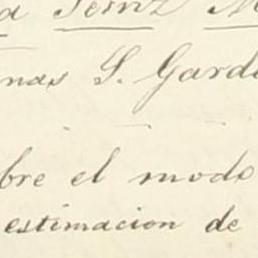 nas S. Gard
bre el modo
estimacion de